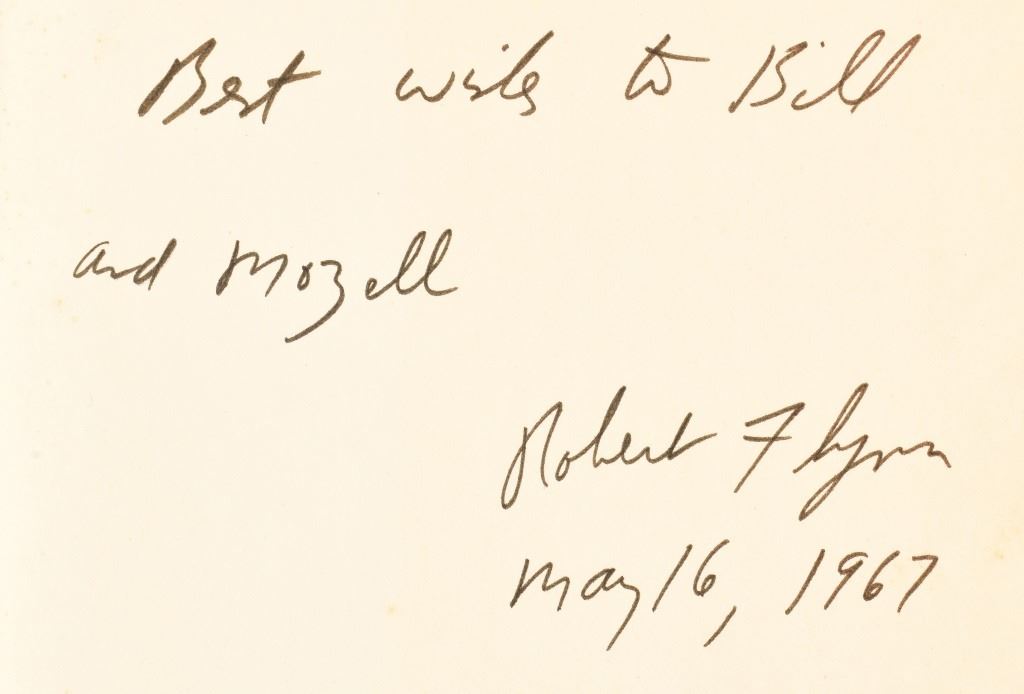 Best wishes to Bill
and Mozell
Robert Flynn
May 16, 1967